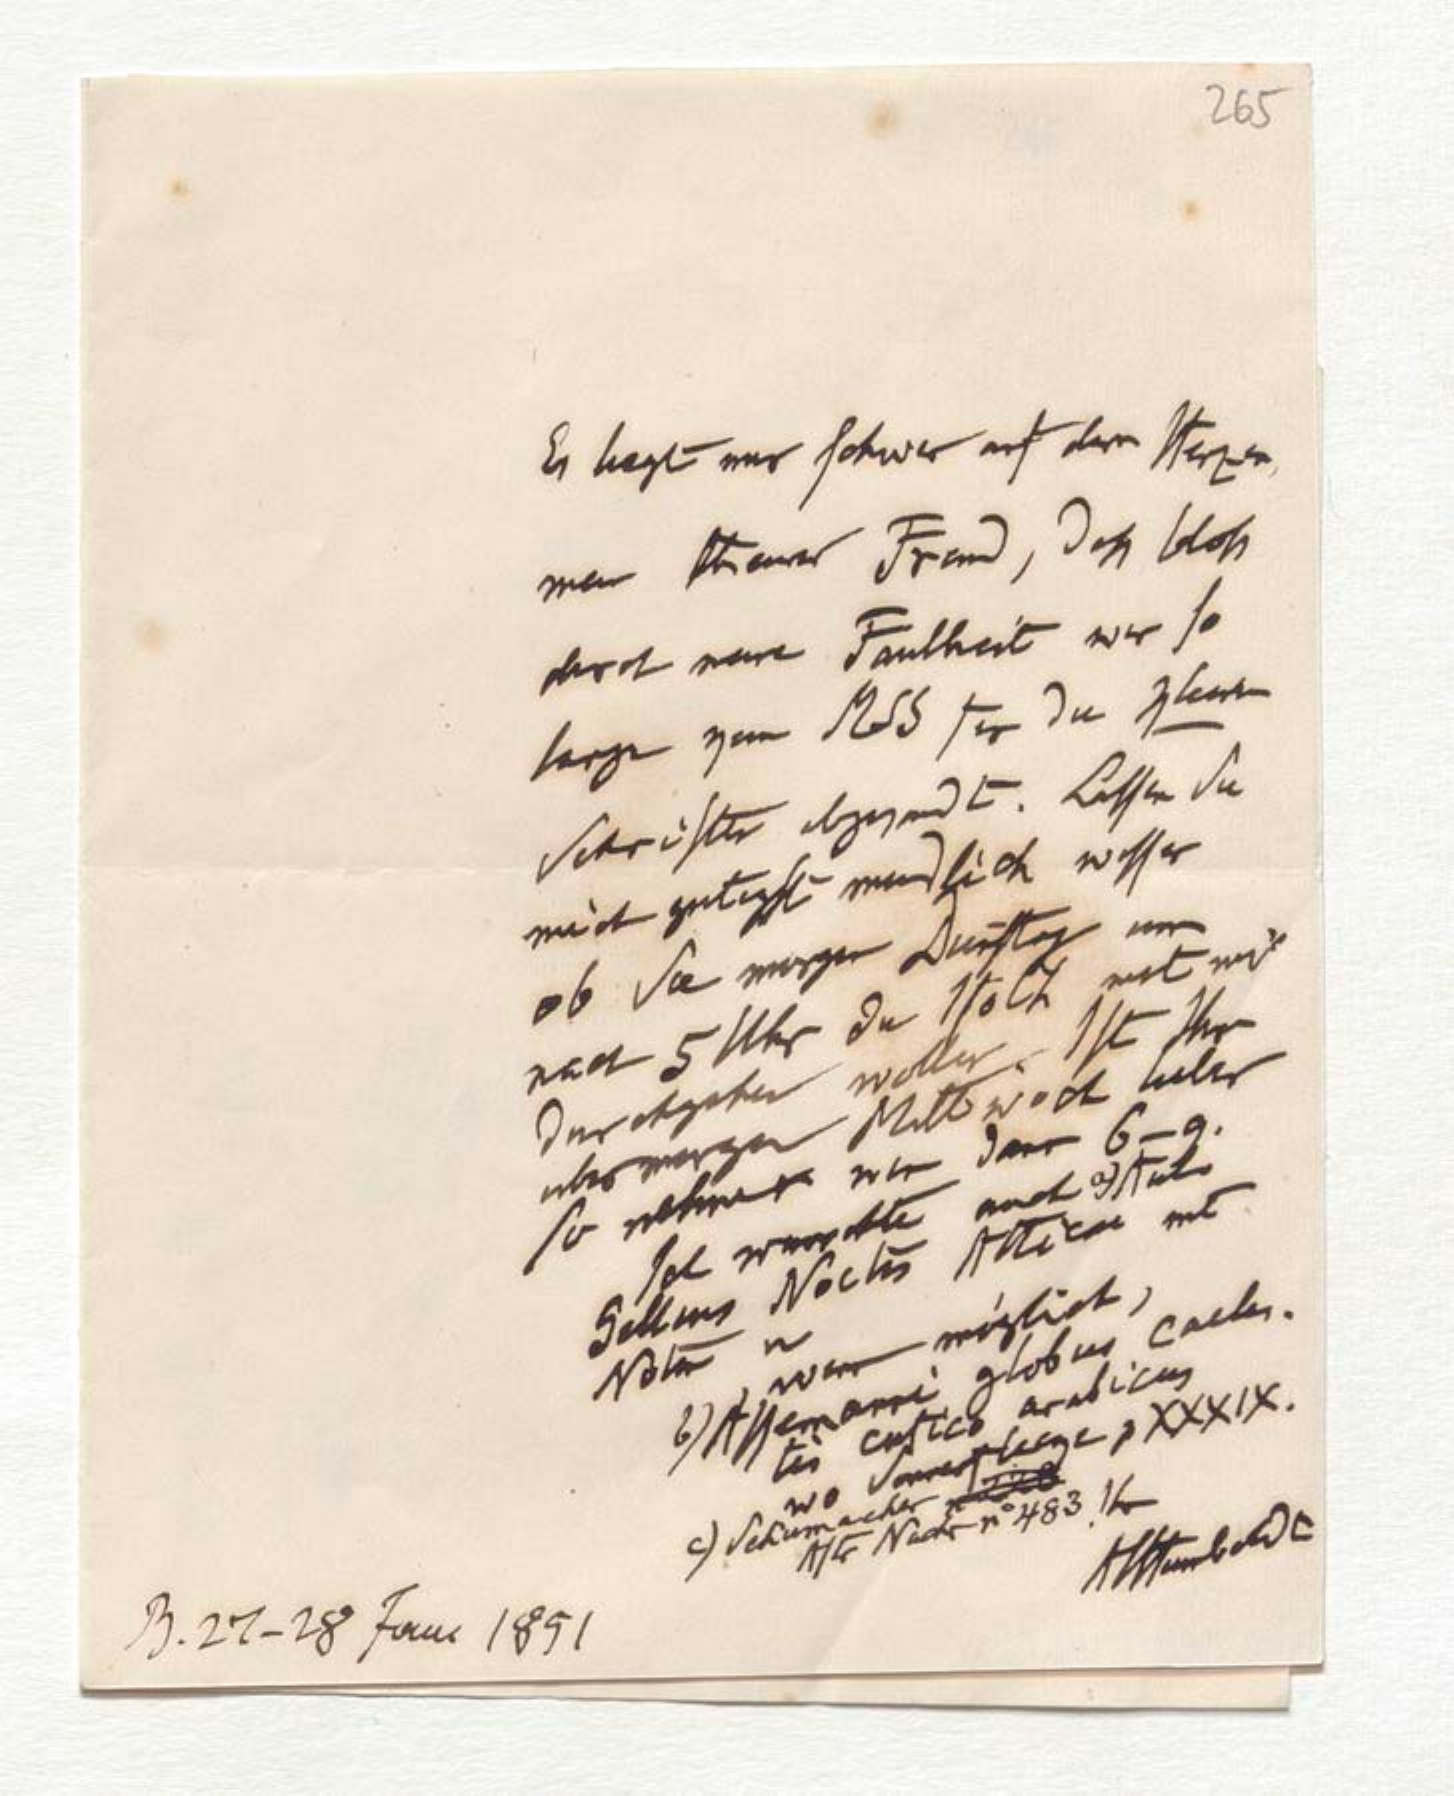 265
Es liegt mir schwer auf dem Herzen,
mein theurer Freund, daß bloß
durch meine Faulheit wir so
lange kein MSS für die kleinen
Schriften abgesandt. Lassen Sie
mich gütigst mündlich wissen
ob Sie morgen Dienstag um
nach 5 Uhr die mit mir
durchgehen wollen. Ist Ihnen
übermorgen Mittwoch lieber
so nehmen wir dann 6–9.
Ich wünschte auch a) Auli
Gellius Noctes Atticae mit
Noten u
b), wenn möglich,
Assemanni globus caeles.
tis cufico arabicus
wo p XXXIX.
c) Schumacher
Astr Nachr n° 483. Ihr
AHumboldt
B. 27–28 1851